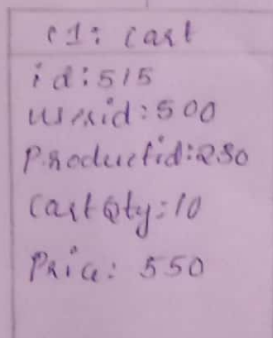 c1: cart
id:515
userid:500
Productid:250
CartQty:10
Price: 550